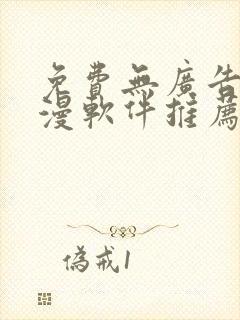 免費無廣告
漫軟件推薦
偽戒1